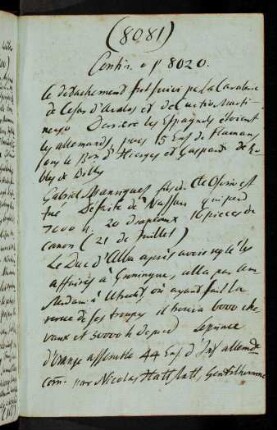 (8081)
Contin. a p 8020.
le detachement fut suivi par la Cavalerie
de Cesar d'Avalos et de Curtio Marti-
nengo Derriere les Espagnols étoient
les allemands, puis 15 Ens. de flamans
sous le Bon d'Hierges et Gaspard de Ro-
bles de Billy
Gabriel Manriques fils du Cte Osorio est
tué Defaite de Nassau qui perd
7000 h. 20 drapeaux 16 pieces de
canon (21 de Juillet)
Le Duc d'Alba après avoir reglé les
affaires à Groningue, alla par Am-
sterdam à Utrecht où ayant fait la
revue de ses troupes il trouva 6000 che-
vaux et 30000 h de pied le prince
d'Orange assembla 44 Ens. d'Inf. allemde
com. par Nicolas Hattstatt, Gentilhomme